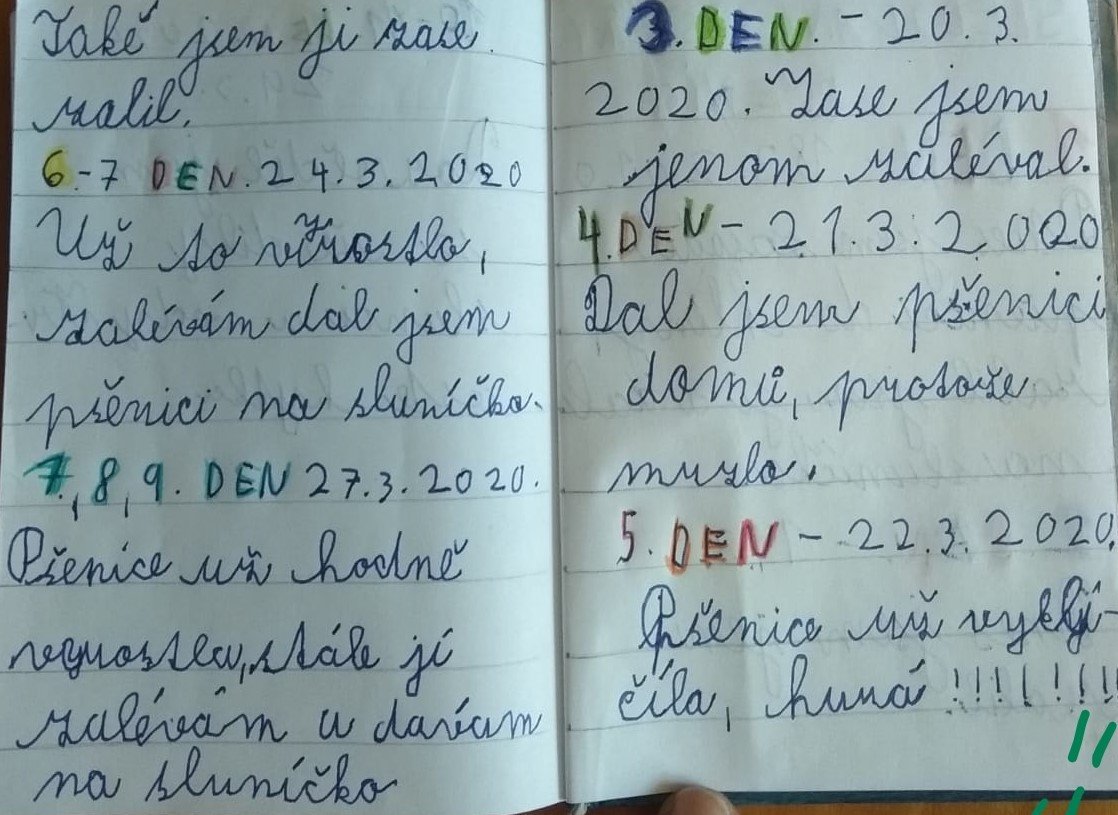 Také jsem ji zase
zalil.
6-7 DEN. 24.3.2020
Už to výrostlo,
zalévám dál jsem
pšěnici na sluníčko.
7,8,9. DEN 27.3.2020.
Pšenice už hodně
vyrostla, stále jí
zalévám a davám
na sluníčko
3. DEN. - 20.3.
2020. Zase jsem
jenom zaléval.
4. DEN - 21.3.2020
Dal jsem pšenici
domů, protože
mrzlo.
5. DEN - 22.3.2020.
Pšenice už vyklí-
číla, hurá !!!!!!!!